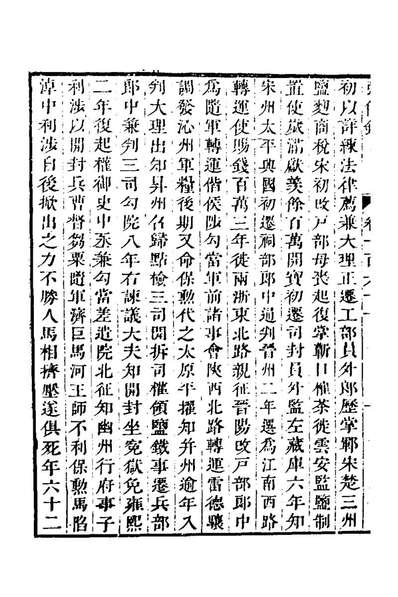 初以詳練法律薦兼大理正遷工部員外郎歷掌鄆宋楚三州
鹽麴商稅宋初改戶部母喪起復掌蘄口榷茶徙雲安監鹽制
置使歲滿獻羨餘百萬開寶初遷司封員外監左藏庫六年知
宋州太平興國初遷祠部郎中通判晉州二年遷為江南西路
轉運使賜錢百萬三年徙兩浙東北路親征晉陽改戶部郎中
為隨軍轉運偕侯陟勾當軍前諸事會陝西北路轉運雷德驤
調發沁州軍糧後期又命保勳代之太原平擢知并州逾年入
判大理出知昇州召歸點檢三司開拆司權領鹽鐵事遷兵部
郎中兼判三司勾院八年右諫議大夫知開封坐寃獄免雍熙
二年復起權御史中丞兼勾當差遣院北征知幽州行府事子
利涉以開封兵曹督芻粟隨軍濟巨馬河王師不利保勳馬陷
淖中利涉自後掀出之力不勝人馬相擠壓遂俱死年六十二